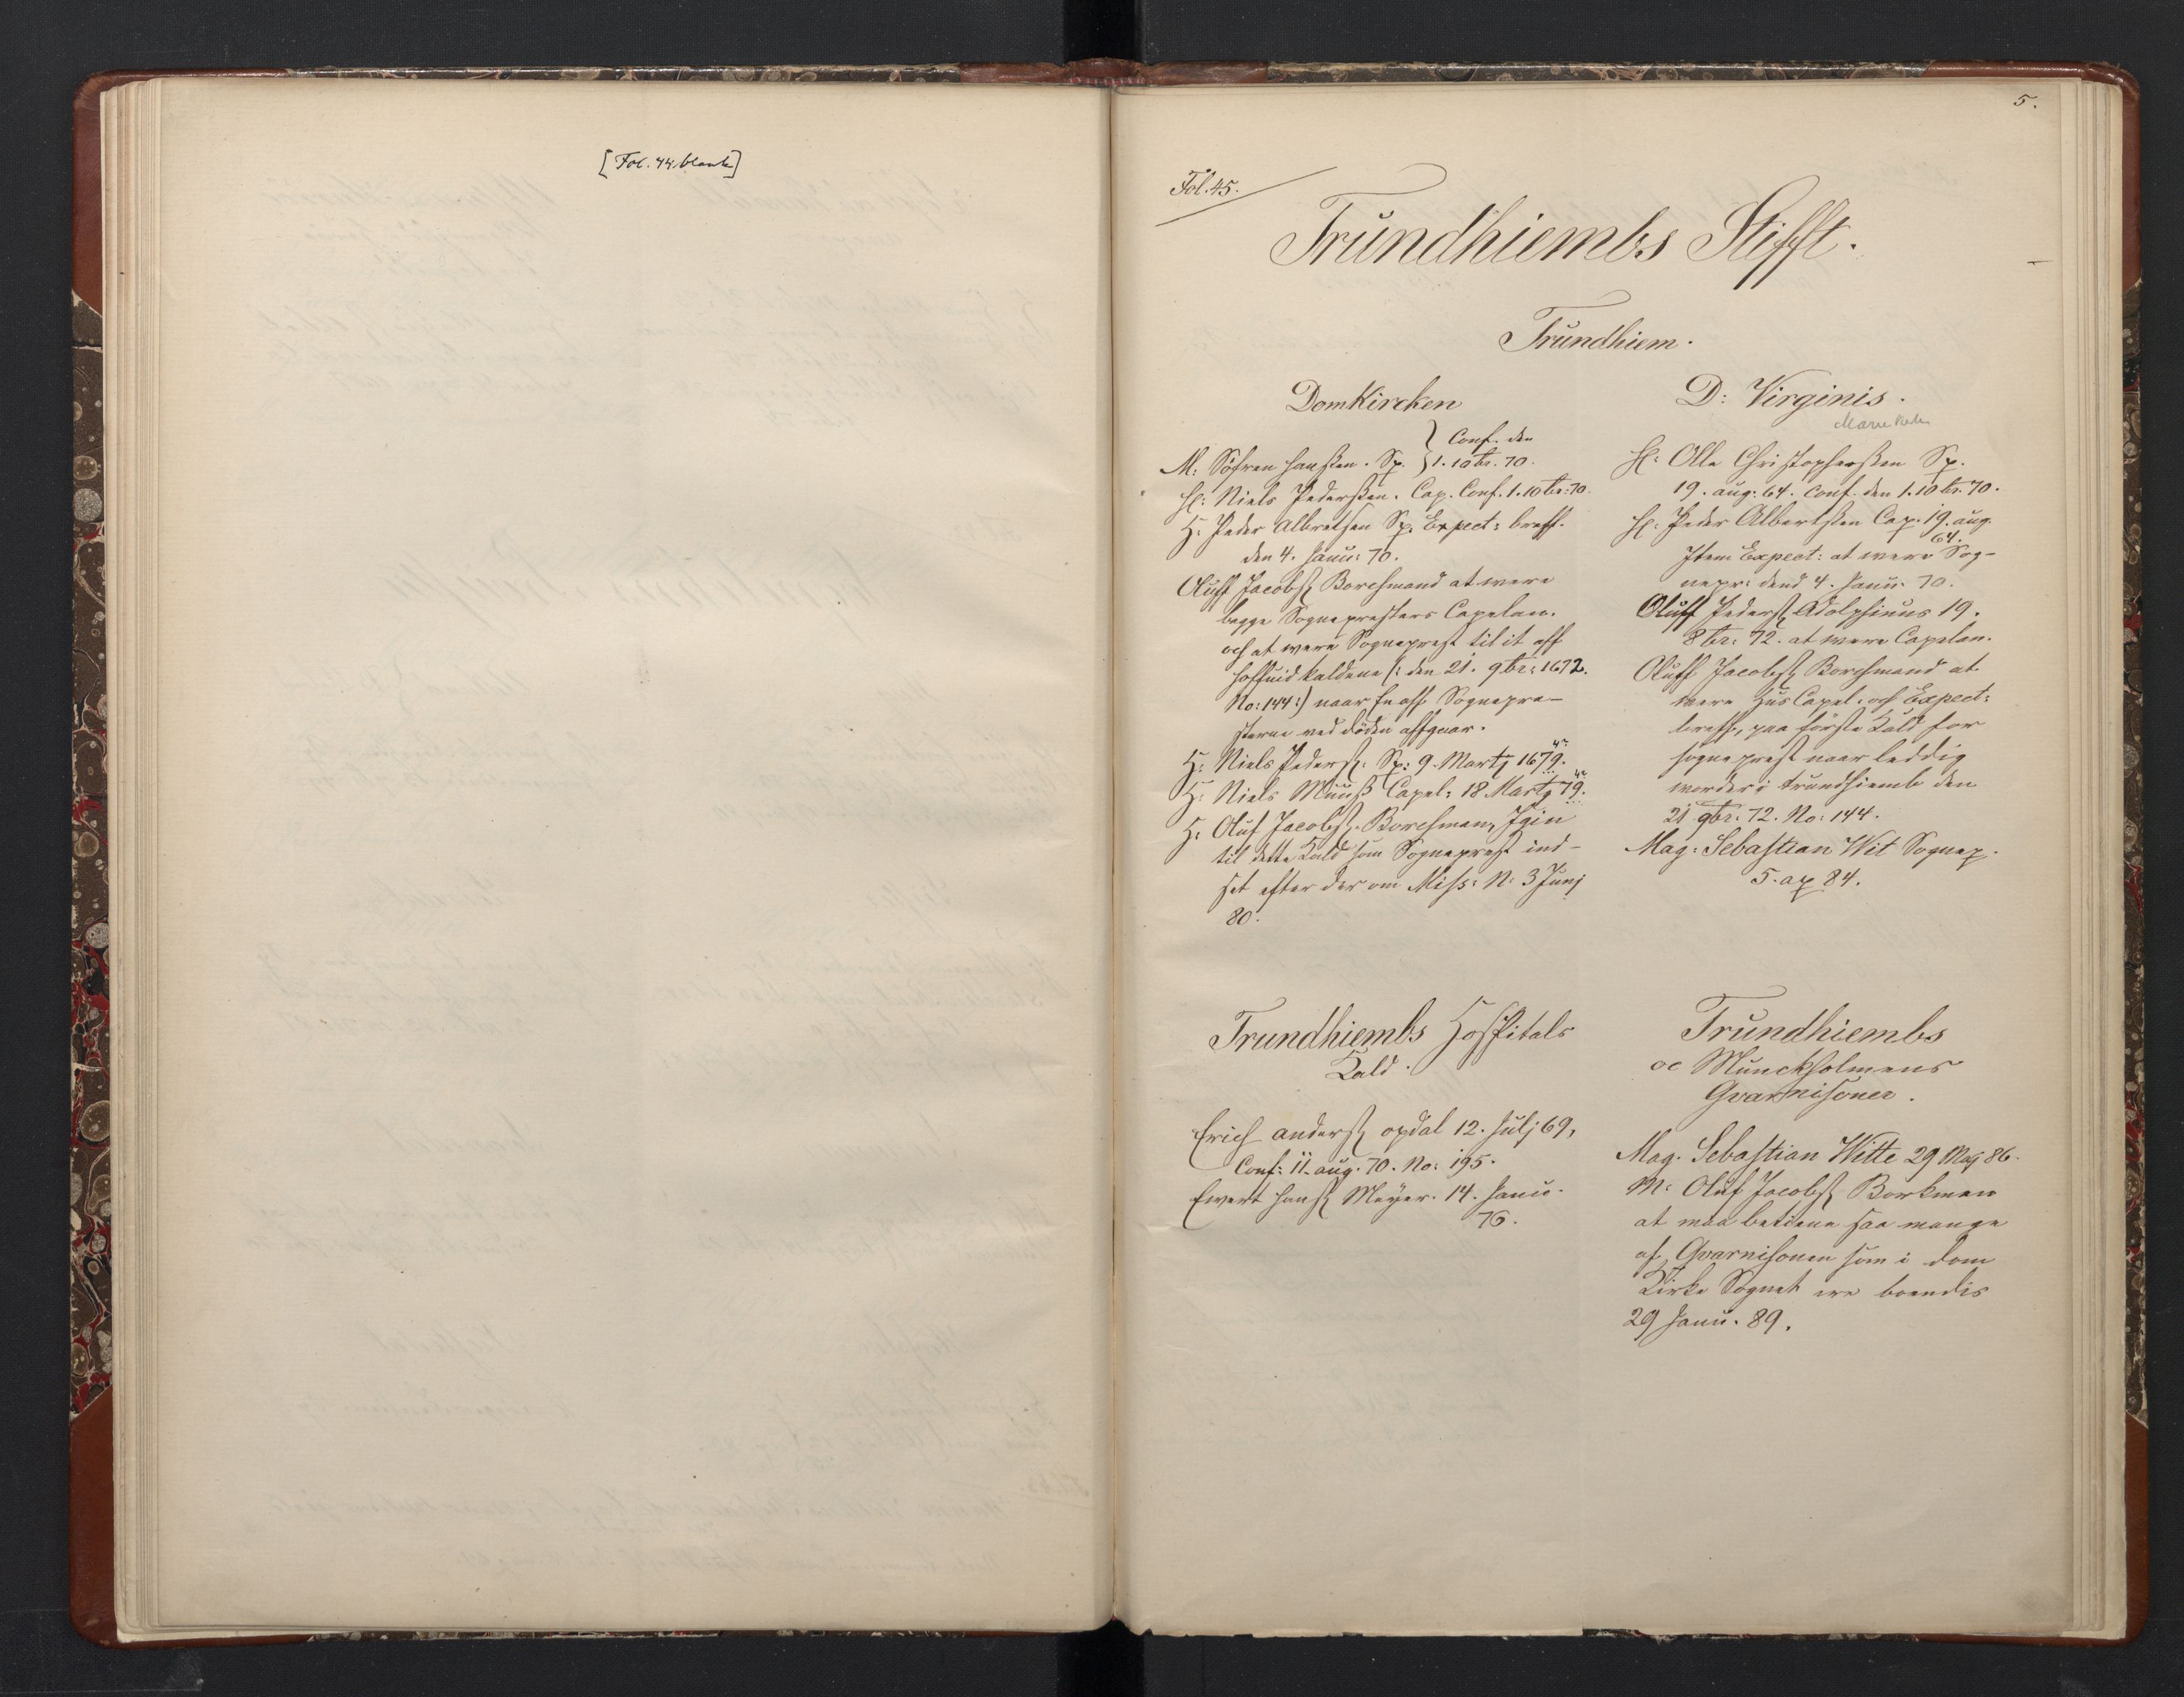 [Fol. 44 blank]
5.
Fol. 45.
Trundhiembs Stifft.
Trundhiem.
DomKircken
M: Söfren Hanssen. Sp. } Conf. den
1. 10br. 70.
H: Niels Pederssen. Cap. Conf. 1. 10br: 70.
H: Peder Albretsen Sp. Expect: breff.
den 4. Janu: 70.
Oluff Jacobss Borchmand at were
begge Sognepresters Capelan.
och at were Sogneprest til it aff
hoffuid kaldene (: den 21. 9br: 1672.
No: 144:) naar En aff Sognepre-
sterne ved döden affgaar.
H: Niels Pederss: Sp: 9. Martj 1679.
H: Niels Muuss Capel: 18 Martj 79.
H: Oluf Jacobss. Borchman, Igien
til dette Kald som Sogneprest ind-
set efter der om Miss: N: 3 Junj
80.
D: Virginis.
Marie Kirke
H: Olle Christopherssen Sp.
19. aug: 64. Conf. den 1. 10br. 70.
H: Peder Albertssen Cap. 19. aug.
64.
Item Expect: at were Sog-
nepr: dend 4. Janu: 70.
Oluff Pederss Adolphinus 19.
8br: 72. at were Capelan.
Oluff Jacobss Borchmand at
were Hus Capel. och Expect:
breff, paa förste Kald for
sogneprest naar leddig
worder i trundhiemb den
21 9br: 72. No: 144.
Mag: Sebastian Wit Sognep.
5. ap 84.
Trundhiembs Hospitals
Kald.
Erich anderss opdal 12. Julj 69,
Conf: 11. aug. 70. No: 195.
Ewert Hanss Meyer. 14. Janu.
76.
Trundhiembs
oc Munckholmens
Gvarnisoner.
Mag. Sebastian Witte 29 Maj 86.
M: Oluf Jacobss Borkman
at maa betiene saa mange
af Gvarnisonen som i dom
Kirke Sognet ere boendis
29 Janu. 89.